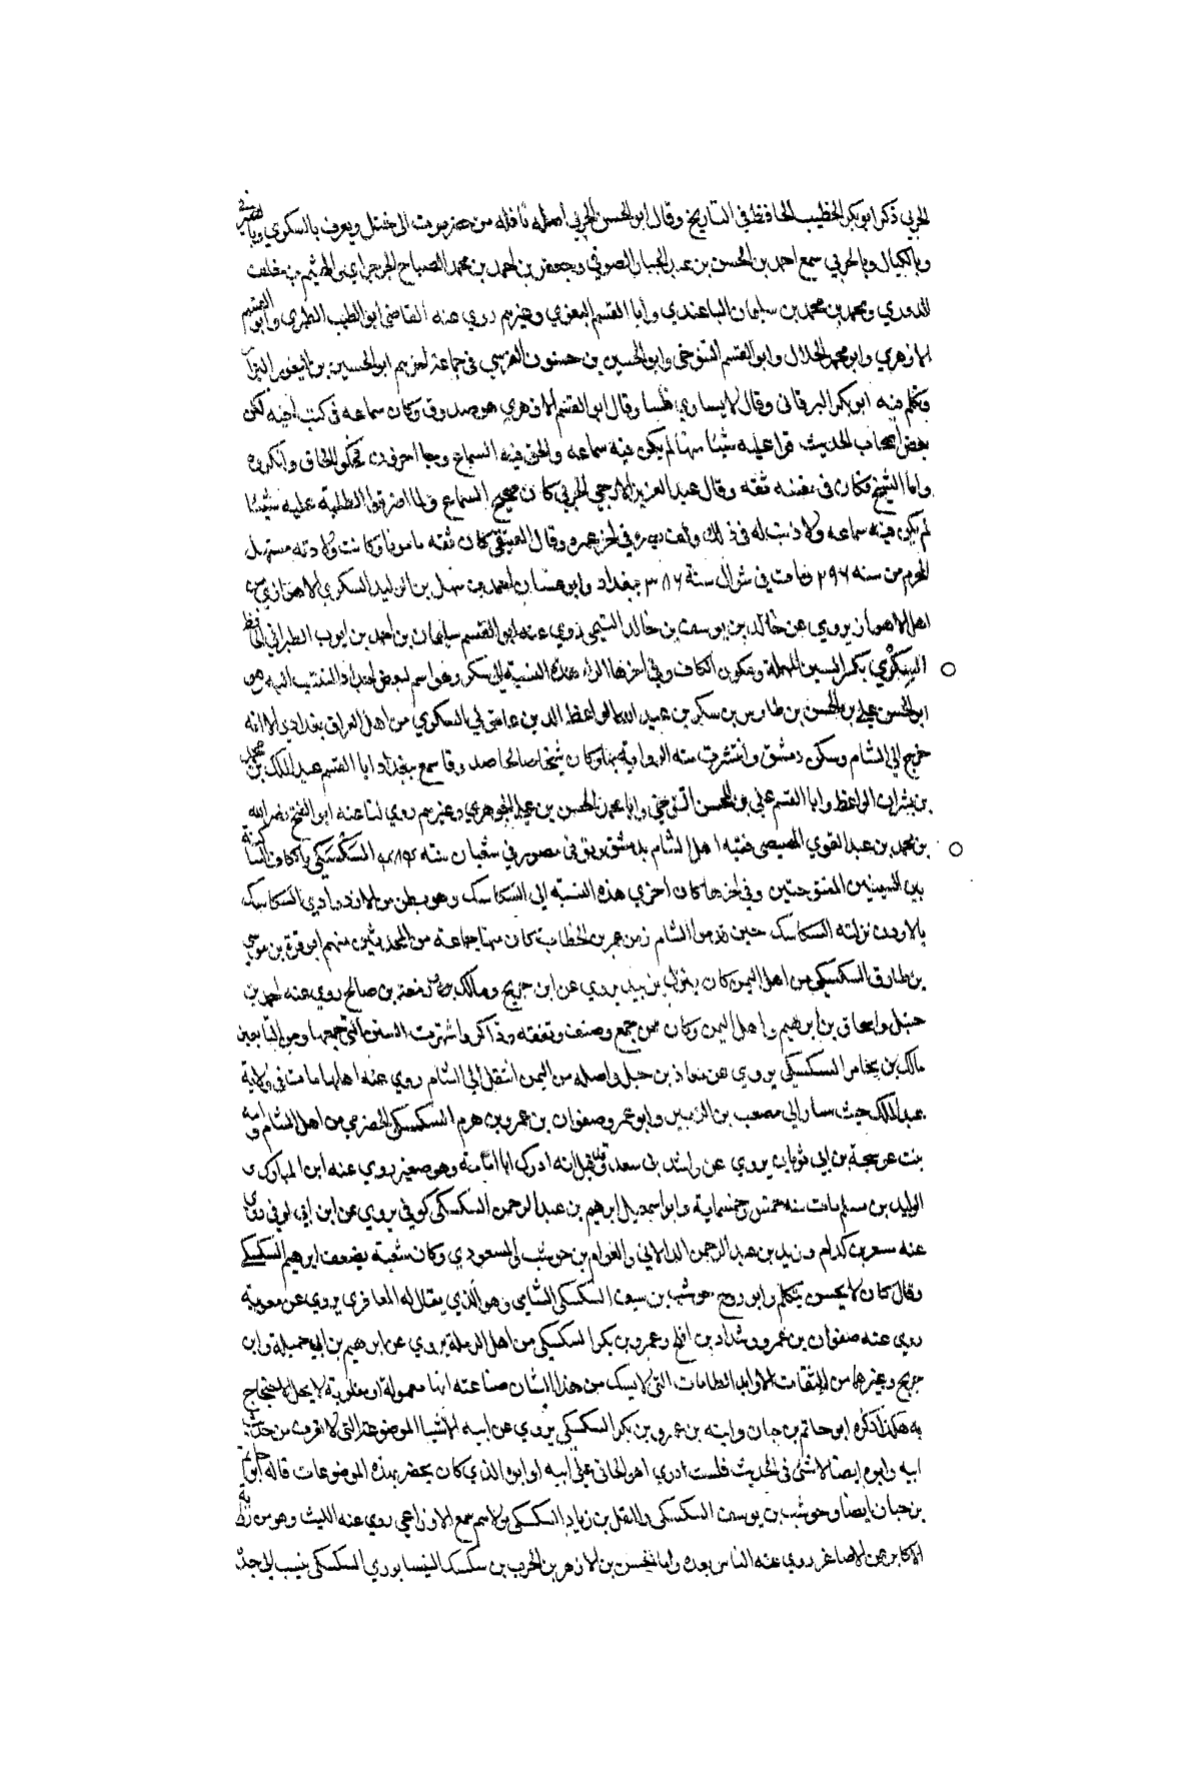 الحربي ذكر ابو بكر الخطيب الحافظ في التاريخ وقال ابو الحسن الحربي اصله ناقله من حضرموت الى ختل ويعرف بالسكري وبالصيرفي
وبالكيال وبالحربي سمع احمد بن الحسن بن عبد الجبار الصوفي وجعفر بن احمد بن محمد الصباح الجرجراي والهيثم بن خلف
الدوري ومحمد بن محمد بن سليمان الباغندي وأبا القسم البغوي وغيرهم روي عنه القاضي ابو الطيب الطبري وابو القسم
الازهري وابو محمد الخلال وابو القسم التنوخي وابو الحسين بن حسنون النرسي في جماعة اخرهم ابو الحسين بن النقور البزاز
وتكلم فيه ابو بكر البرقاني وقال لا يساوي فلسا وقال ابو القسم الازهري هو صدوق وكان سماعه في كتب اخيه لكن
بعض اصحاب الحديث قرا عليه شيئا منها لم يكن فيه سماعه والحق فيه السماع وجا اخرون فحكوا الالحاق وانكروه
واما الشيخ فكان في نفسه ثقه وقال عبد العزيز الازجي الحربي كان صحيح السماع ولما اضر قرا الطلبة عليه شيئا
لم يكن فيه سماعه ولا ذنب له في ذلك وكف بصره في اخر عمره وقال العتيقي كان ثقه مامونا وكانت ولادته مستهل
المحرم من سنه ٢٩٦ ومات في شوال سنة ٣٨٦ ببغداد وابو احمد بن سهل بن الوليد السكري الاهوازي من
اهل الاهواز يروي عن خالد بن يوسف بن خالد السمتي روي عنه ابو القسم سليمان بن احمد بن ايوب الطبراني الحافظ
السِكْري بكسر السين المهملة وسكون الكاف وفي اخرها الراء هذه النسبة الى سكر وهو اسم لبعض اجداد المنتسب اليه وهو
ابو الحسن علي بن الحسن بن طاوس بن سكر بن عبد الله الواعظ السكري من اهل العراق بغدادي الا انه
خرج الى الشام وسكن دمشق وانتشرت عنه الرواية بها وكان شيخا صالحا صدوقا سمع ببغداد ابا القسم عبد الملك بن محمد
بن بشران الواعظ وابا القسم علي بن المحسن التنوخي وابا محمد الحسن بن علي الجوهري وغيرهم روي لنا عنه ابو الفتح نصر الله
بن محمد بن عبد القوي المصيصي فقيه اهل الشام بدمشق وتوفي في صور في شعبان سنه السَكْسَكي بالكاف الساكنة
بين السينين المفتوحتين وفي اخرها كاف اخري هذه النسبة إلى السَكاسك وهو بطن من الازد ووادي السكاسك
بالاردن نزلته السكاسك حين قدموا الشام زمن عمر بن الخطاب كان منها جماعة من المحدثين منهم ابو قرة بن موسى
بن طارق السكسكي من اهل اليمن كان ينزل بزبيد يروي عن ابن جريج ومالك وزمعة بن صالح روي عنه احمد بن
حنبل واسحاق بن ابرهيم واهل اليمن وكان ممن جمع وصنف وتفقه وذاكر واشتهرت السنن التي جمعها ومن التابعين
مالك بن يخامر السكسكي يروي عن معاذ بن جبل واصله من اليمن انتقل إلى الشام روي عنه اهلها مات في ولاية
عبد الملك حيث سار إلى مصعب بن الزبير وابو عمرو صفوان بن عمرو بن هرم السكسكي الحضرمي من اهل الشام وامه
بنت عوسجة بن ابي ثوبان يروي عن راشد بن سعد وقد قيل انه ادرك ابا امامة وهو صغير روي عنه ابن المبارك و
الوليد بن مسلم مات سنه خمس وخمسماية وابو اسمعيل ابرهيم بن عبد الرحمن السكسكي كوفي يروي عن ابن ابي اوفى روى
عنه مسعر بن كدام ويزيد بن عبد الرحمن الدالاني والعوام بن حوشب والمسعودي وكان شعبة يضعف ابرهيم السكسكي
وقال كان لا يحسن يتكلم وابو روح حوشب بن سيف السكسكي الشامي وهو الذي يقال له المعافري يروي عن معوية
روي عنه صفوان بن عمرو وشداد بن افلح وعمرو بن بكر السكسكي من اهل الرملة يروي عن ابرهيم بن ابي عبلة وابن
جريج وغيرهما من الثقات الاوابد الطامات التي لا يشك من هذا الشان صناعته انها معمولة او مقلوبة لا يحل الاحتجاج
به هكذا ذكره ابو حاتم بن حبان وابنه بن عمرو بن بكر السكسكي يروي عن ابيه الاشيا الموضوعة التي لا تعرف من حديث
ابيه وابوه ايضا لا شئ في الحديث فلست ادري اهو الجاني على ابيه او ابوه الذي كان يخصه بهذه الموضوعات قاله ابو حاتم
بن حبان ايضا وحوشب بن يوسف السكسكي والهقل بن زياد السكسكي سمع الاوزاعي روي عنه الليث وهو من رواية
الاكابر عن الاصاغر روي عنه الناس بعده واما الحسن بن الازهر بن الحرب بن سكسك النيسابوري السكسكي ينسب إلى جده